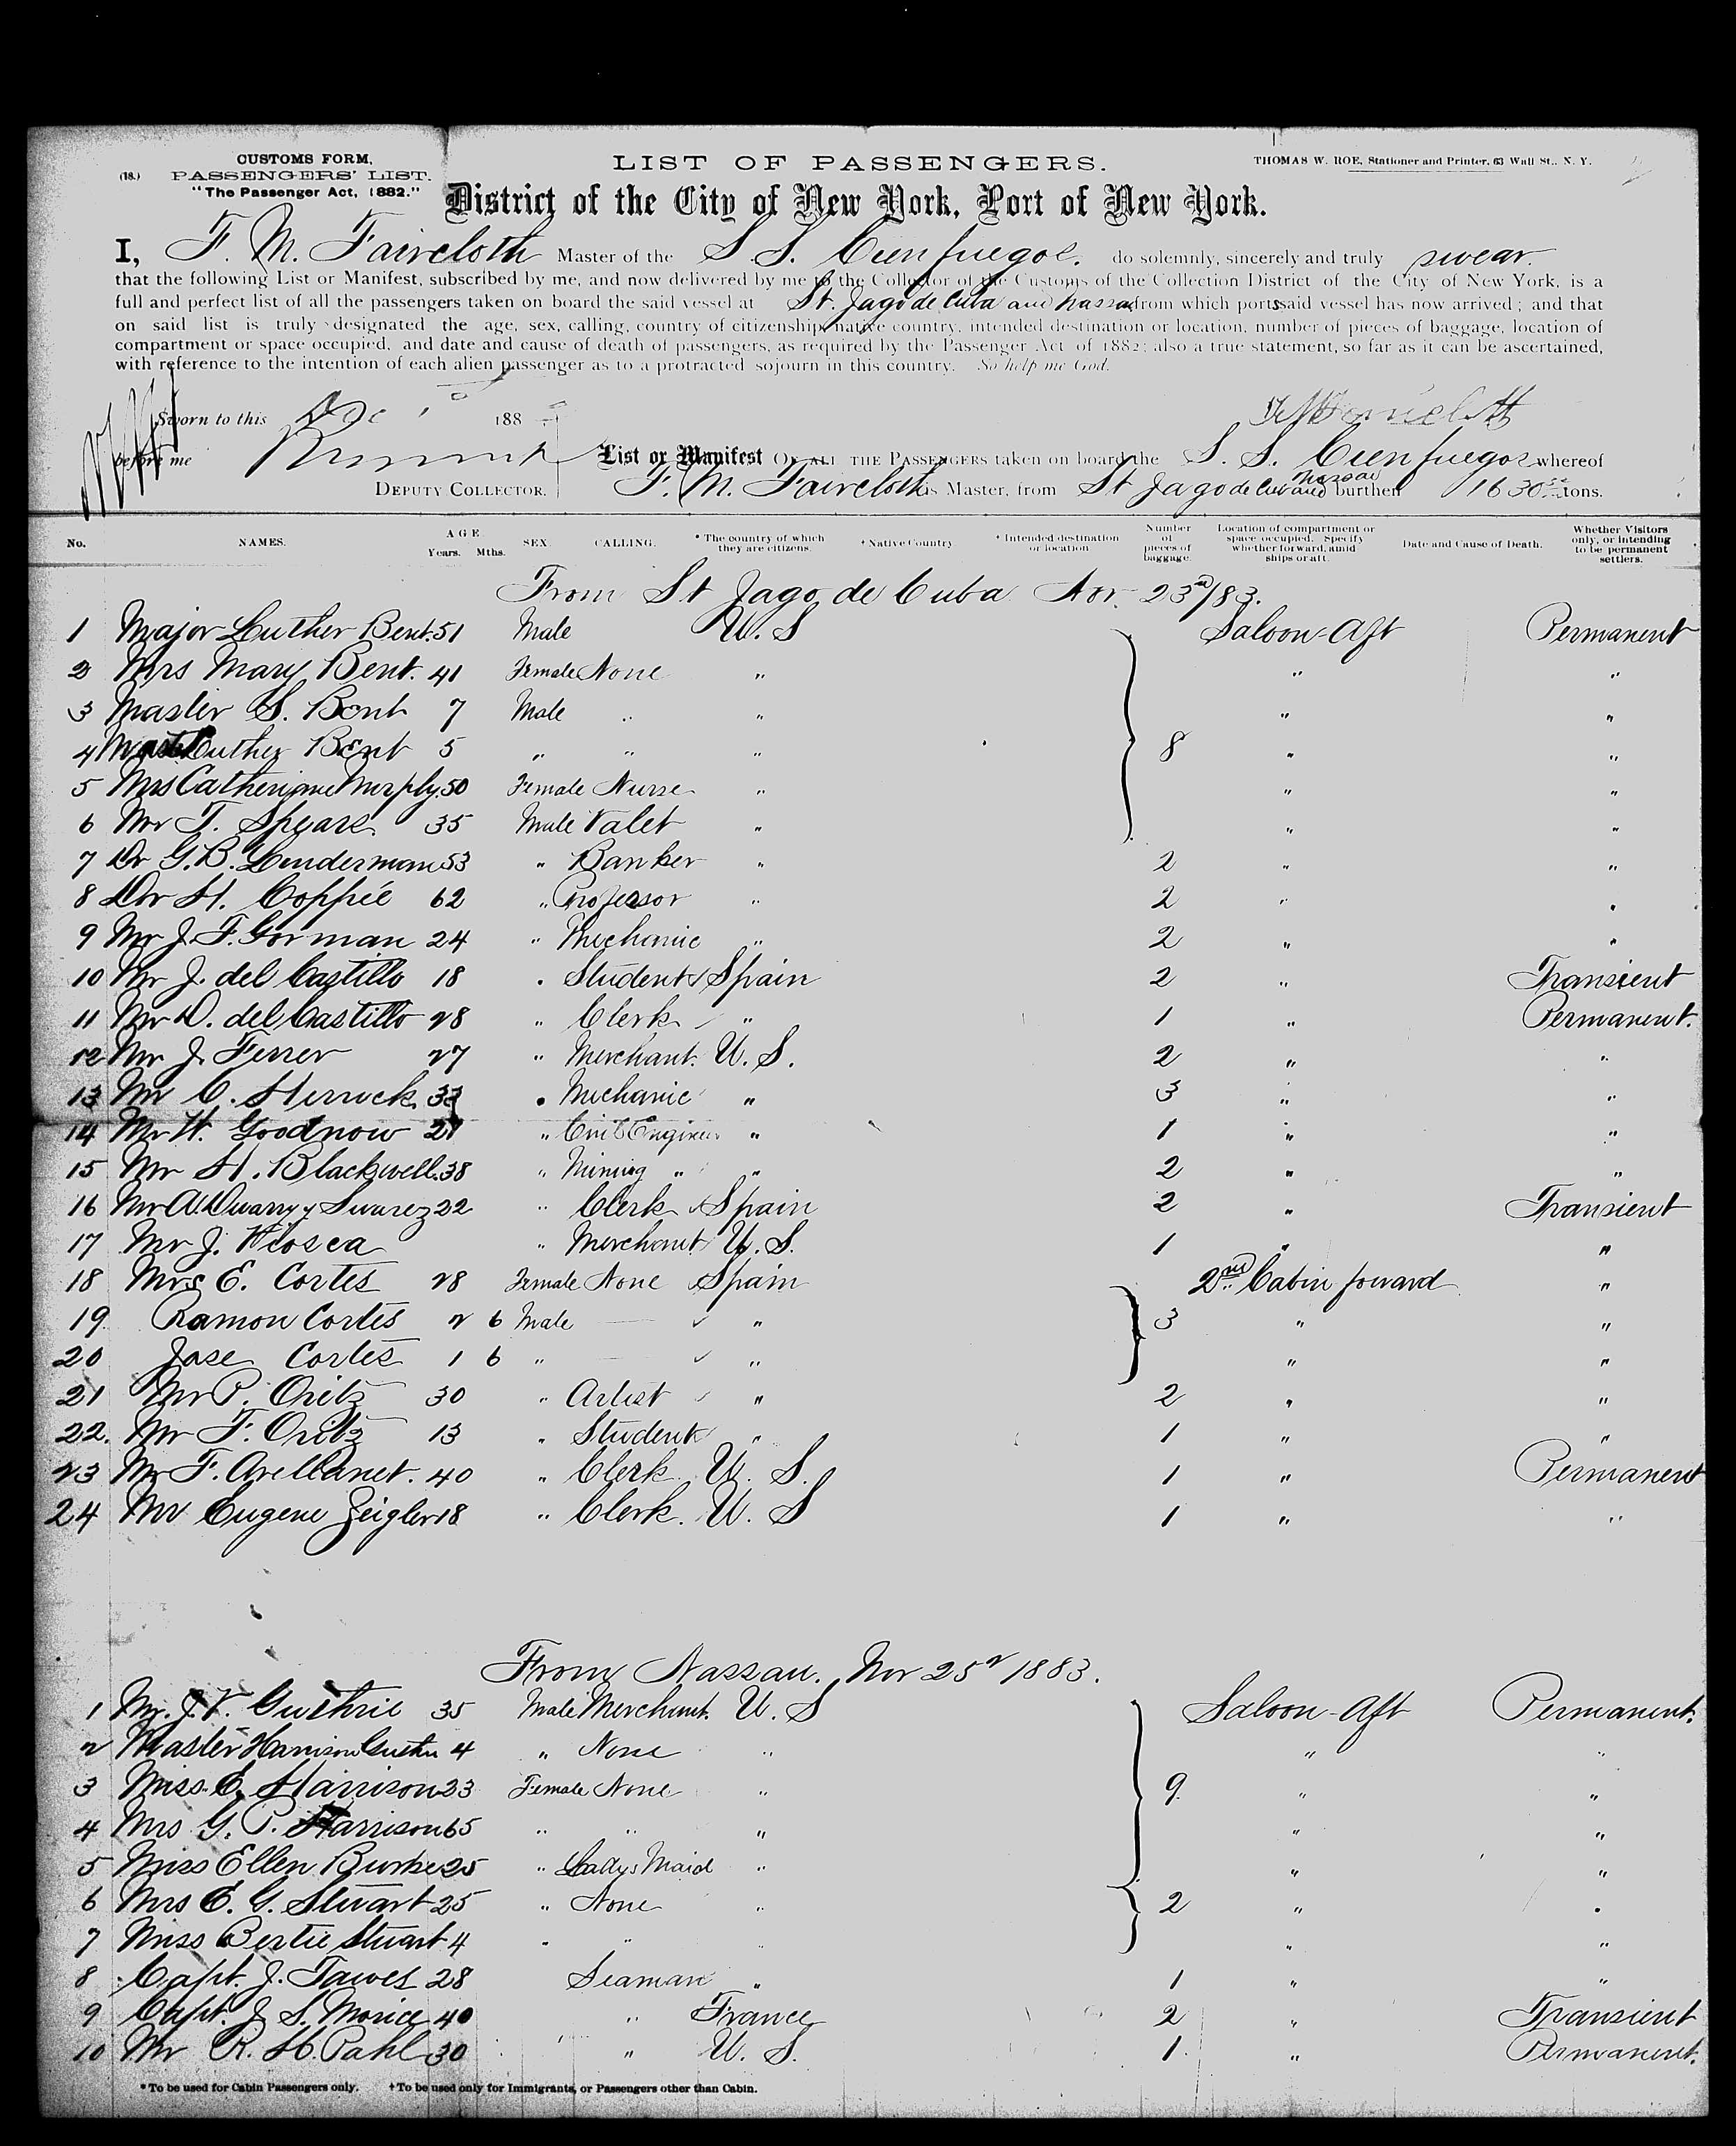 (18.) CUSTOMS FORM,
PASSENGERS' LIST.
"The Passenger Act, 1882."
LIST OF PASSENGERS.
THOMAS W. ROE, Stationer and Printer, 63 Wall St., N. Y.
District of the City of New York, Port of New York.
I, F. M. Faircloth Master of the S. S. Cienfuegos. do solemnly, sincerely and truly swear
that the following List or Manifest, subscribed by me, and now delivered by me to the Collector of the Customs of the Collection District of the City of New York, is a
full and perfect list of all the passengers taken on board the said vessel at St. Jago de Cuba and Nassau from which ports said vessel has now arrived; and that
on said list is truly designated the age, sex, calling, country of citizenship, native country, intended destination or location, number of pieces of baggage, location of
compartment or space occupied, and date and cause of death of passengers, as required by the Passenger Act of 1882; also a true statement, so far as it can be ascertained,
with reference to the intention of each alien passenger as to a protracted sojourn in this country. So help me God.
Sworn to this Dec 1 188
before me
DEPUTY COLLECTOR.
List or Manifest OF ALL THE PASSENGERS taken on board the S. S. Cienfuegos whereof
F. M. Faircloth is Master, from St Jago de Cuba and Nassau burthen 1630 tons.
No. NAMES. AGE Years. Mths. SEX. CALLING. * The country of which they are citizens. † Native Country † Intended destination or location. Number of pieces of baggage. Location of compartment or space occupied. Specify whether forward, amidships or aft. Date and Cause of Death. Whether Visitors only, or intending to be permanent settlers.
From St Jago de Cuba Nov. 23rd/83.
1 Major Luther Bent. 51 Male U. S Saloon-Aft Permanent
2 Mrs Mary Bent. 41 Female None " " "
3 Master S. Bent 7 Male " " " "
4 Luther Bent 5 " " " 8 " "
5 Mrs Catherine Murphy. 50 Female Nurse " " "
6 Mr T. Spears 35 Male Valet " " "
7 Dr G. B. Linderman 53 " Banker " 2 " "
8 Dr H. Coppée 62 " Professor " 2 " "
9 Mr J. F. Gorman 24 " Mechanic " 2 " "
10 Mr J. del Castillo 18 " Student Spain 2 " Transient
11 Mr D. del Castillo 28 " Clerk " 1 " Permanent.
12 Mr J. Ferrer 27 " Merchant. U. S. 2 " "
13 Mr C. Herrick 33 " Mechanic " 3 " "
14 Mr H. Goodnow 27 " Civil Engineer " 1 " "
15 Mr H. Blackwell. 38 " Mining " " 2 " "
16 Mr A. Duarry y Suarez 22 " Clerk Spain 2 " Transient
17 Mr J. " Merchant U. S. 1 " "
18 Mrs E. Cortes 28 Female None Spain 2nd Cabin forward "
19 Ramon Cortes 2 6 Male " 3 " "
20 Jose Cortes 1 6 " " " "
21 Mr P. Oritz 30 " Artist " 2 " "
22. Mr F. Oritz 13 " Student " 1 " "
23 Mr F. Arellanet. 40 " Clerk U. S. 1 " Permanent
24 Mr Eugene Zeigler 18 " Clerk. U. S 1 " "
From Nassau. Nov 25 1883.
1 Mr. J. V. Guthrie 35 Male Merchant. U. S Saloon-Aft Permanent.
2 Master Harrison Guthrie 4 " None " " "
3 Miss E. Harrison 23 Female None " 9 " "
4 Mrs G. P. Harrison 65 " " " " "
5 Miss Ellen Burke 25 " Ladys Maid " " "
6 Mrs E. G. Stuart 25 " None " 2 " "
7 Miss Bertie Stuart 4 " " " " "
8 Capt. J. Tawes 28 Seaman " 1 " "
9 Capt. J. S. Morice 40 " France 2 " Transient
10 Mr R. H. Pahl 30 " U. S. 1 " Permanent.
* To be used for Cabin Passengers only. † To be used only for Immigrants, or Passengers other than Cabin.